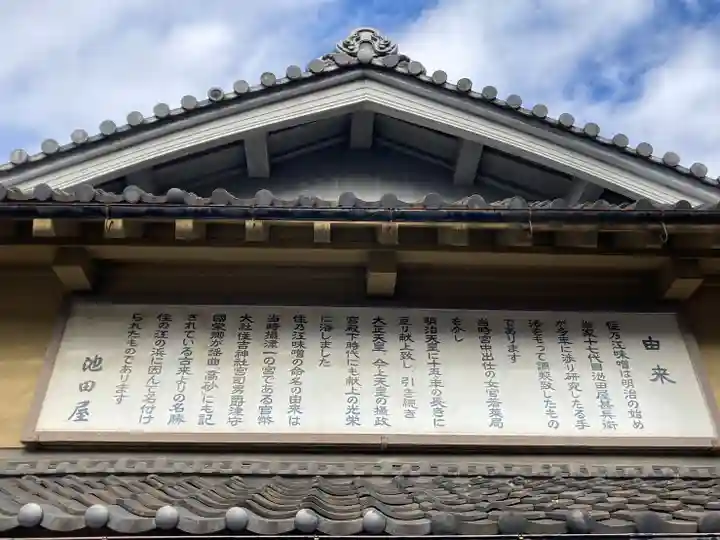 由来
住乃江味噌は明治の始め
当家十七代目池田屋甚兵衛
が多年に渉り研究したる手
法をもって調製致したもの
であります
当時宮中出仕の女官若菜局
を介し
明治天皇に十有五年の長きに
亘り献上致し 引き続き
大正天皇、今上天皇の摂政
宮殿下時代にも献上の光栄
に浴しました
住乃江味噌の命名の由来は
当時摂津一の宮である官幣
大社住吉神社宮司男爵津守
國栄卿が謡曲「高砂」にも記
されている古来よりの名勝
住の江の浜に因んで名付け
られたものであります
池田屋